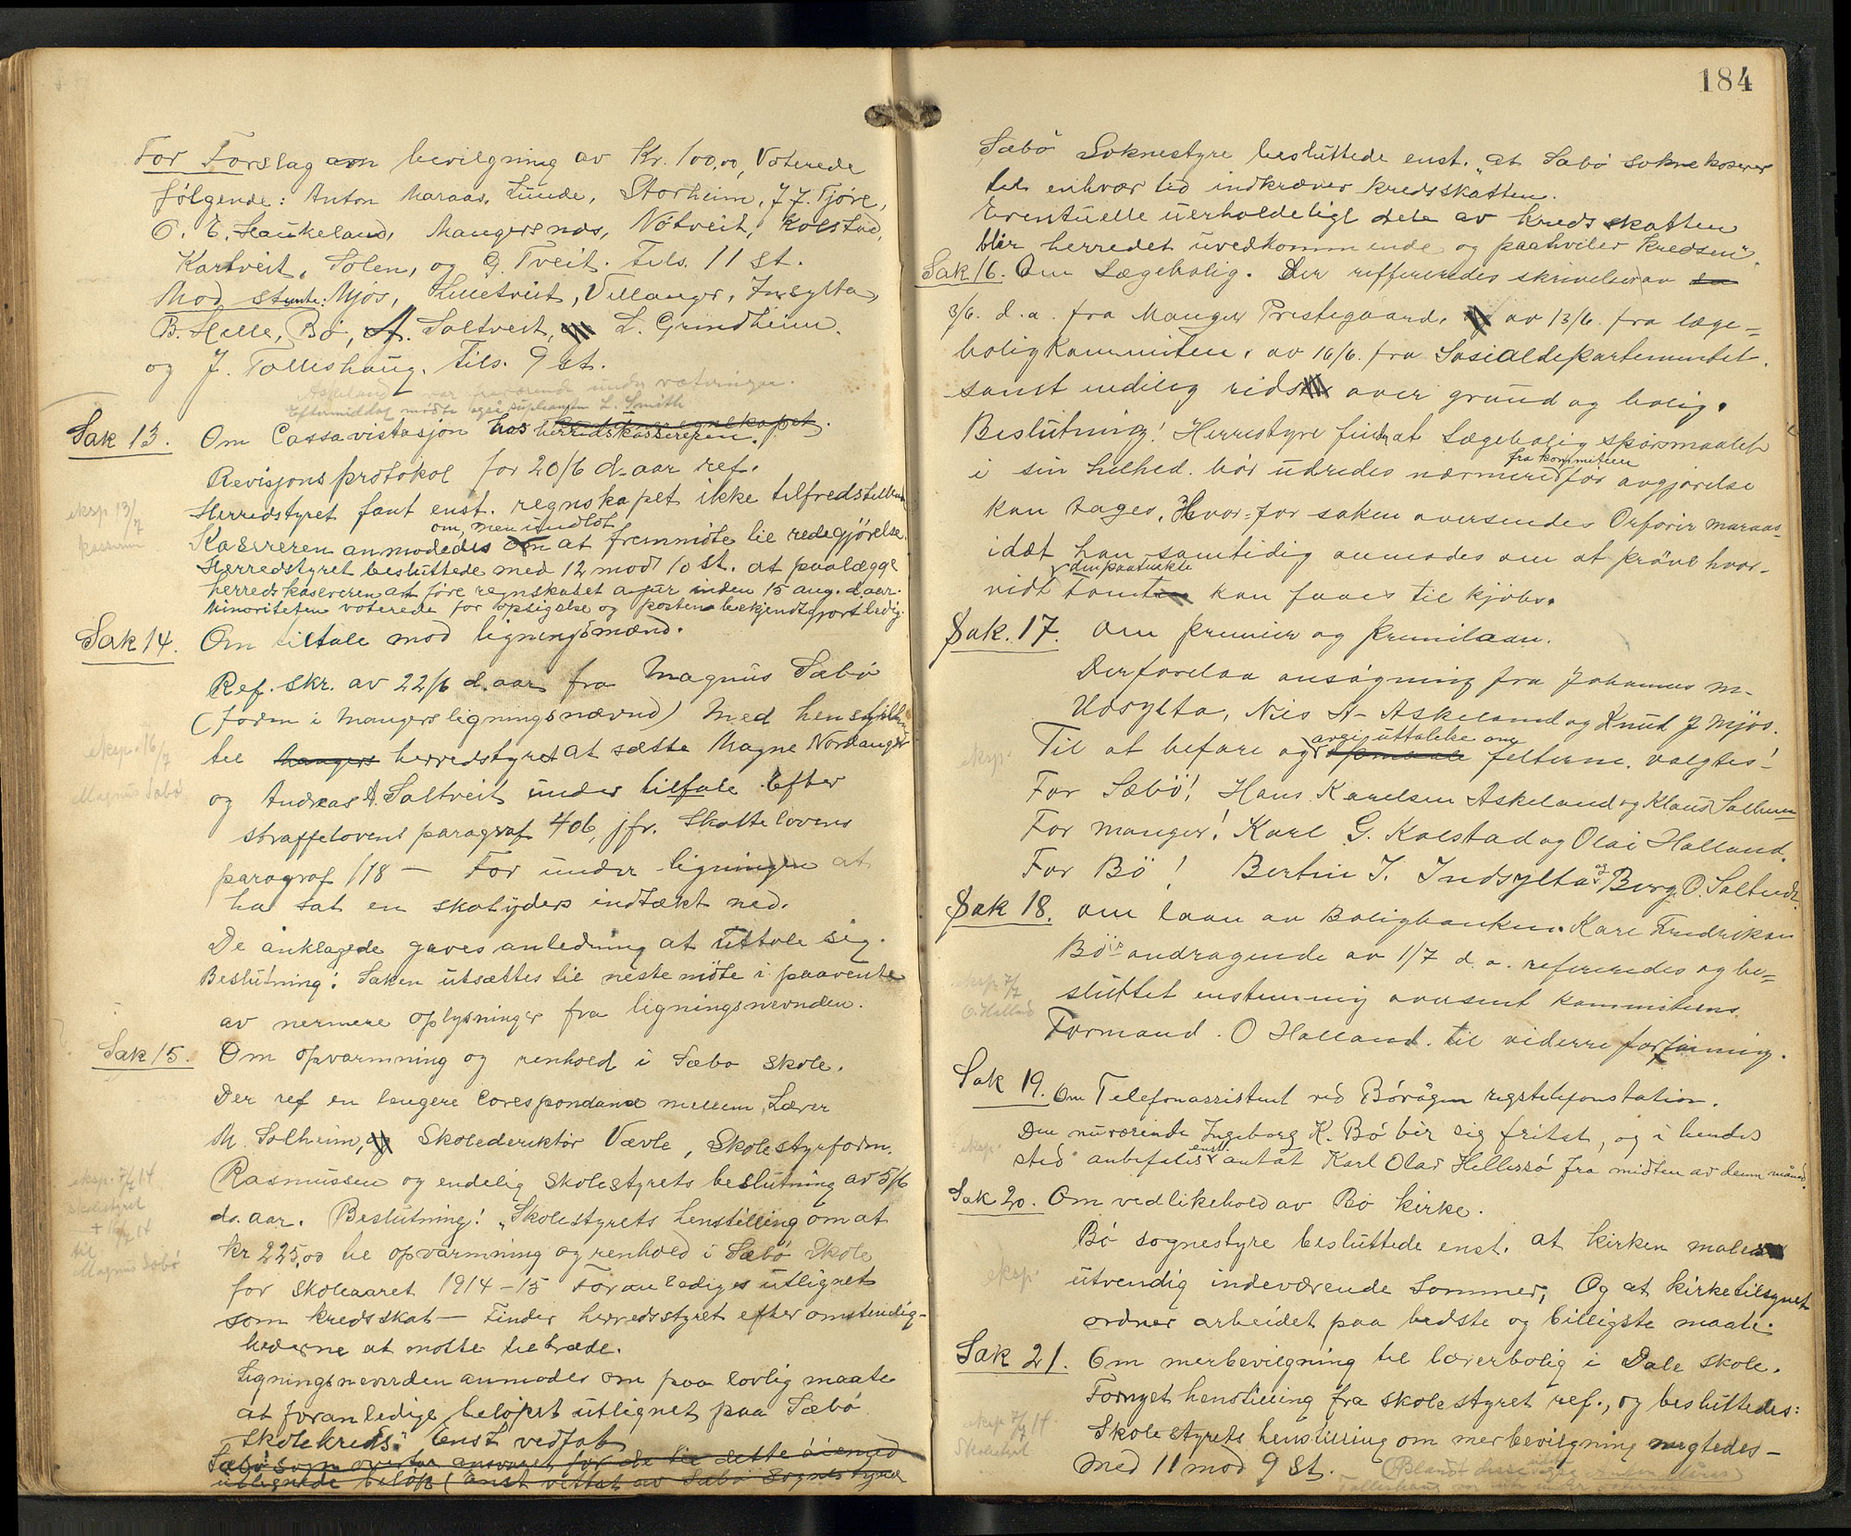 184
For Forslag om bevilgning av Kr. 100,00, Voterede
følgende: Anton Maraas, Lunde, Storheim, J. J. Tjöre,
O. E. Haukeland, Mangersnes, Nötveit, Kolstad,
Kartveit, Solen, og G. Tveit. Tils. 11 st.
Mod stemte: Mjös, Litletveit, Vellanger, Insylta,
B. Hille, Bö, A. Saltveit, L. Grindheim.
og J. Tolleshaug. Tils. 9 st.
Askeland var fraværende under voteringen.
Eftermiddag mödte også supleanten L. Smith
Sak 13. Om Cassavistasjon hos herredskassereren.
Revisjonsprotokol for 20/6 d. aar ref.
Herredstyret fant enst. regnskapet ikke tilfredstillend
om, men undlot
Kasereren anmodedes om at fremmöte til redegjörelse.
Herredstyret besluttede med 12 mod 10 st. at paalægge
herredskasereren at före regnskabet a jür inden 15 aug. d. aar.
Minoriteten voterede for opsigelse og posten bekjendtgjort ledig.
eksp 13/7
kasseren
Sak 14. Om tiltale mod ligningsmænd.
Ref. skr. av 22/6 d. aar fra Magnus Sæbö
(form i Mangers ligningsnævnd) Med henstilling
til Mangers herredstyret at sætte Magne Nordanger
og Andreas A. Saltveit under tilfale Efter
straffelovens paragraf 406, jfr. Skattelovens
paragraf 118 — For under ligningen at
ha sat en skatyders indtækt ned.
De anklagede gaves anledning at uttale sig.
Beslutning: Saken utsættes til neste möte i paavente
av nermere oplysninger fra ligningsnevnden.
eksp. 16/7
Magnus Sæbö
Sak 15. Om opvarmning og renhold i Sæbo skole.
Der ref en lengere Corespondanse mellem, Lærer
M. Solheim, og Skolederiktör Vævle, Skolestyreform.
Rasmussen og endelig skolestyrets beslutning av 5/6
ds. aar. Beslutning! "Skolestyrets henstilling om at
kr 225,00 til opvarmning og renhold i Sæbö Skole
for skoleaaret 1914–15 Foranlediges utlignet
som kredsskat — Finder herredsstyret efter omstendig-
hederne at motte tiltræde.
Ligningsnevnden anmodes om paa lovlig maate
at foranledige belöpet utlignet paa Sæbö
skolekreds." Enst vedtat
Sæbö sogn overtar ansvaret for de til dette öiemed
utlignede belöp (enst vettat av Sæbö Sognestyre
eksp. 7/7 14
skolestyret
+ 16/7 14
til
Magnus Sæbö
Sæbö Soknestyre besluttede enst. "at Sæbö soknekaserer
til enhver tid indkræver kredsskatten.
Eventuelle uerholdelige dele av kredsskatten
blir herredet uvedkommende og paahviler kredsen".
Sak 16. Om Lægebolig. Der reffereredes skrivelser av
3/6. d. a. fra Manger Prestegaard, av 13/6. fra læge-
boligkommiteen, av 16/6. fra Sosialdepartementet.
samt endelig rids over grund og bolig.
Beslutning! Herrestyre finder at Lægebolig spörsmaalet
fra kommiteen
i sin helhed, bör udredes nærmere för avgjörelse
kan tages, Hvor-for saken oversendes Orförir Maraas-
idæt han samtidig anmodes om at pröve hvor-
den paatænkte
vidt tomten kan faaes til kjöbs.
Sak. 17. Om premier og premielaan.
Der forelaa ansögning fra Johannes M-
Udsylta, Nils N- Askeland og Knud J Mjös.
avgi uttalelse om
Til at befare og felterne, valgtes-
For Sæbö! Hans Karelsen Askeland og Klaus Solheim
For Manger! Karl G. Kolstad og Olai Halland.
For Bö! Bertin I. Indsylta og Berg. O. Saltveit
eksp.
Sak 18. Om laan av Boligbanken. Karl Fredriksen
Bö's andragende av 1/7 d. a. refereredes og be-
sluttet enstemmig oversent kommiteens
Formand. O Halland. til viderre forföining.
eksp 7/7
O. Halland
Sak 19. Om Telefonassistent ved Bövågen rigstelefonstation.
Den nuværende Ingeborg K. Bö bir sig fritat, og i hendes
sted anbefales enst. antat Karl Olas Hellesö fra midten av denne måned.
eksp.
Sak 20. Om vedlikehold av Bö kirke.
Bö sognestyre besluttede enst. at kirken males
utvendig indeværende Sommer, Og at kirketilsynet
ordner arbeidet paa bedste og billigste maate.
eksp.
Sak 21. Om merbevilgning til lærerbolig i Dale skole.
Fornyet henstilling fra skolestyret ref., og besluttedes:
Skolestyrets henstilling om merbevilgning negtedes -
Med 11 mod 9 St.
eksp 7/7 14.
Skolestyret